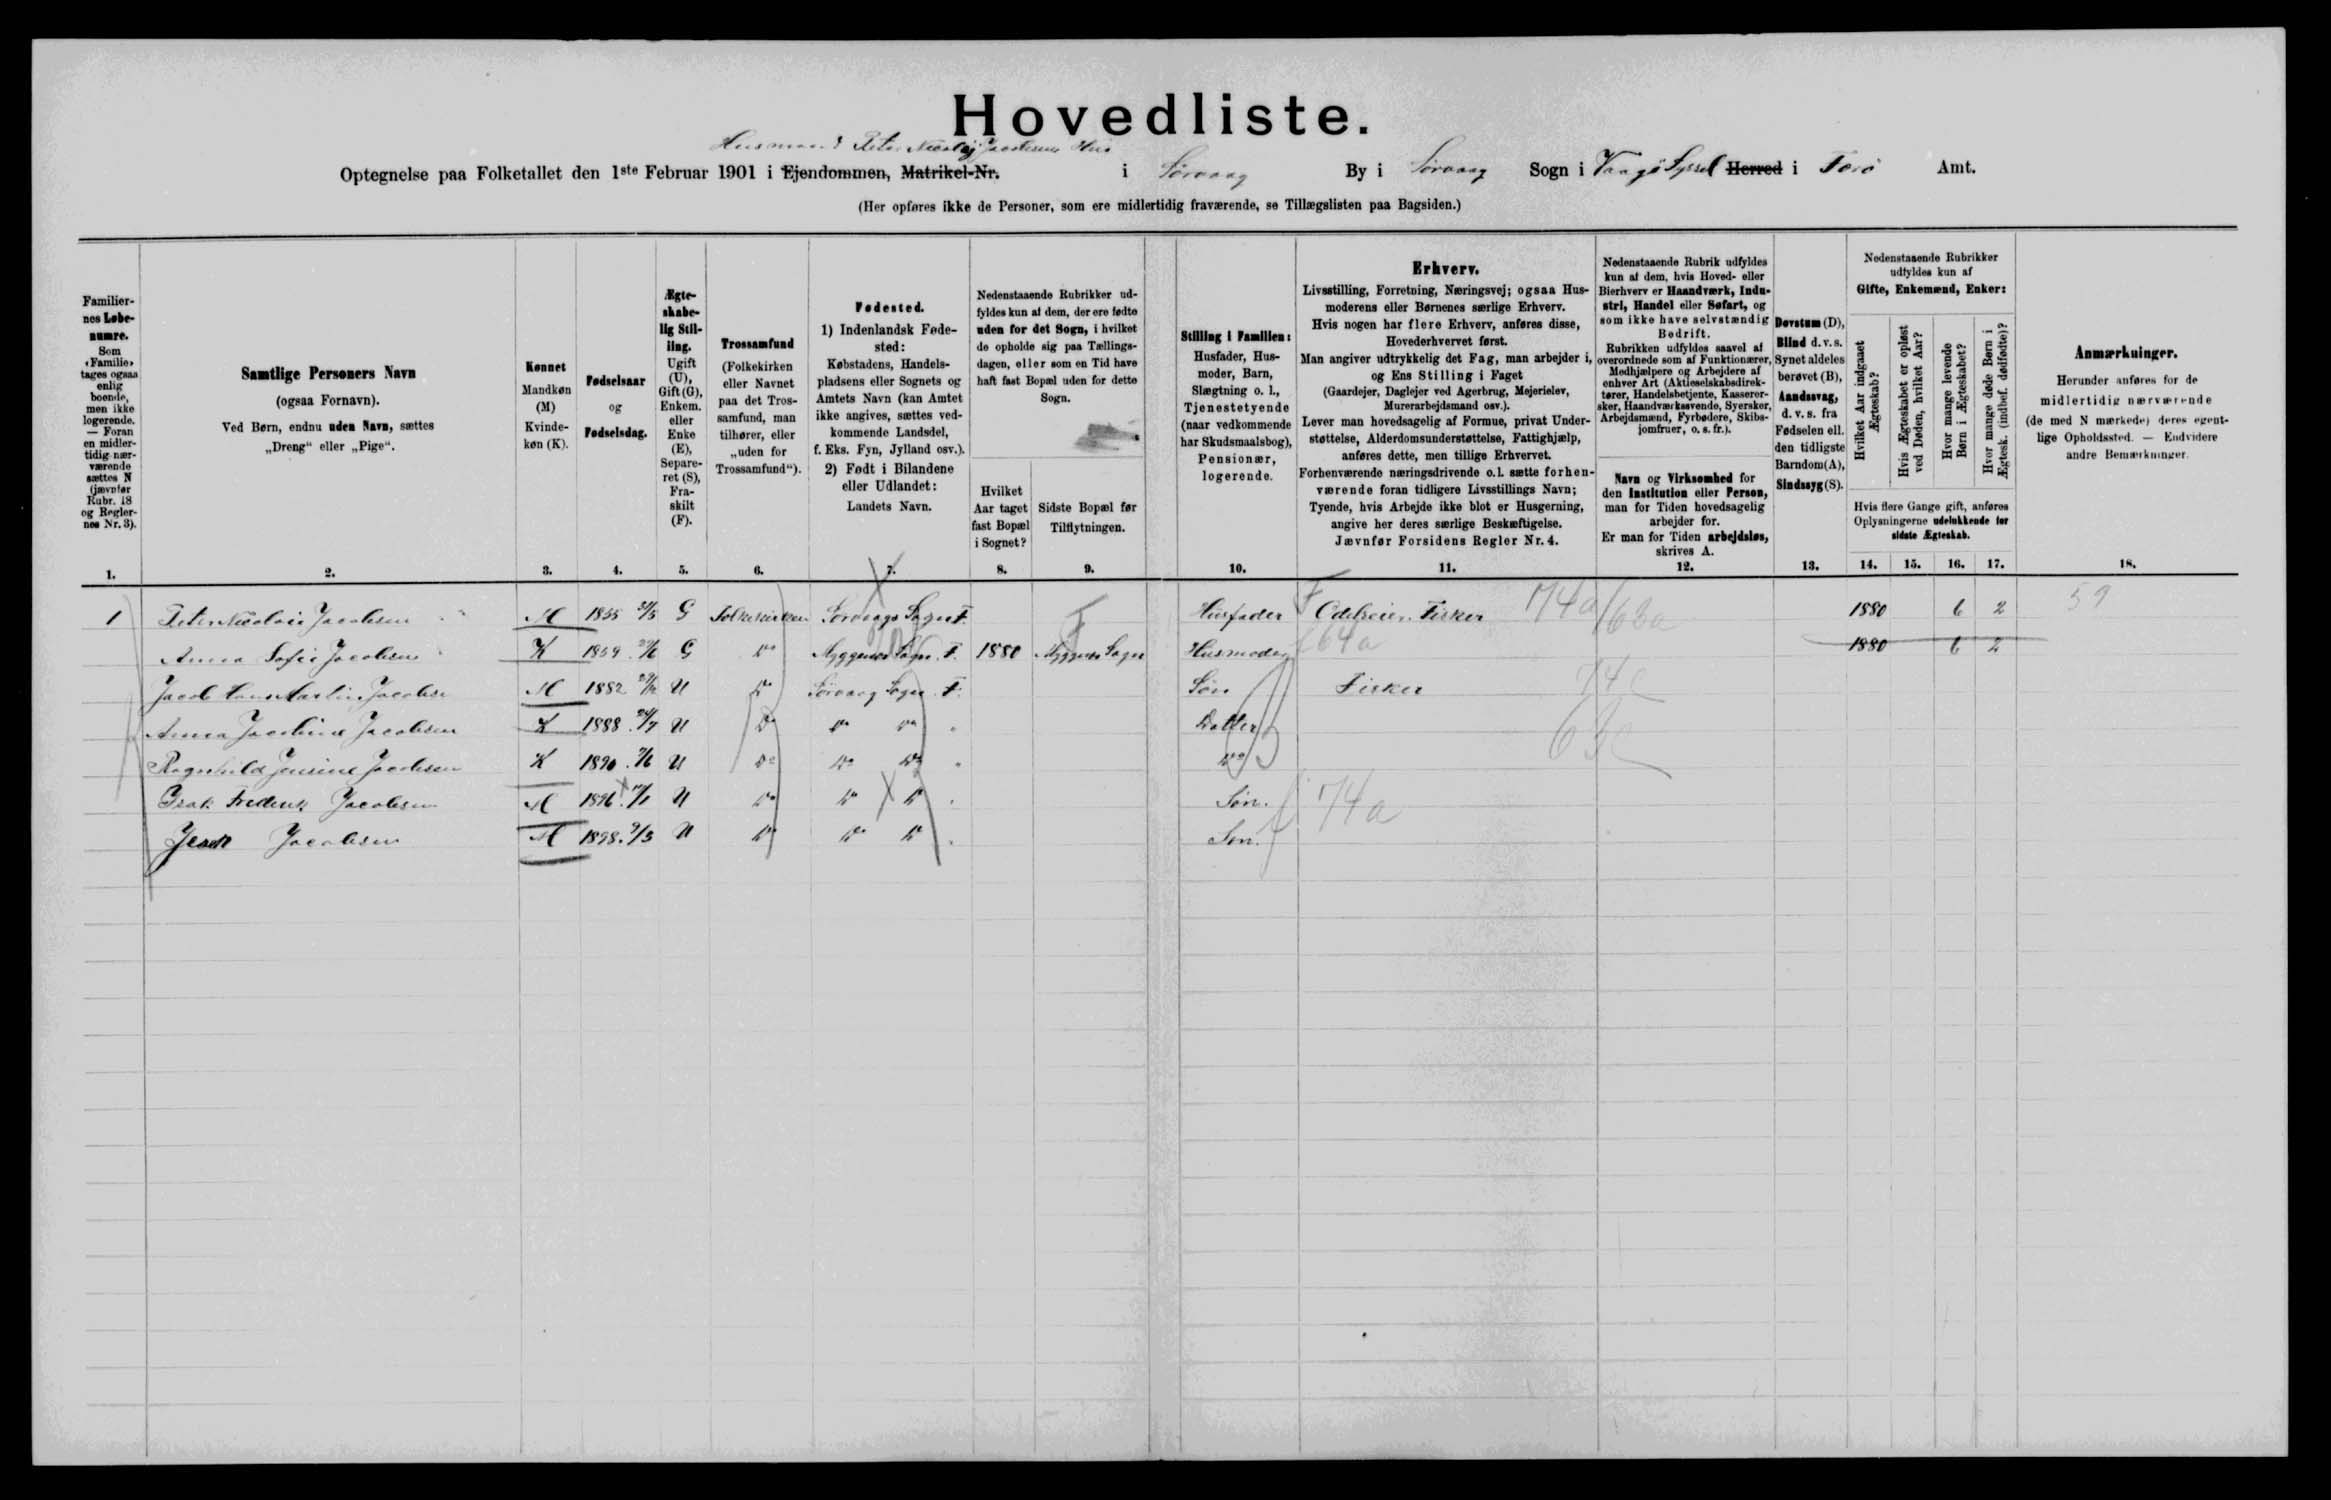 Hovedliste.
Husmand Peter Nicolaj Jacobsens Hus
Optegnelse paa Folketallet den 1ste Februar 1901 i Ejendommen, Matrikel-Nr. i Sørvaag By i Sørvaag Sogn i Vaagø Syssel Herred i Færø Amt.
(Her opføres ikke de Personer, som ere midlertidig fraværende, se Tillægslisten paa Bagsiden.)
Familiernes Løbenumre.
Som «Familie» tages ogsaa enlig boende, men ikke logerende. — Foran en midlertidig nærværende sættes N (jævnfør Rubr. 18 og Reglernes Nr. 3).
1.
Samtlige Personers Navn
(ogsaa Fornavn).
Ved Børn, endnu uden Navn, sættes
„Dreng“ eller „Pige“.
2.
Kønnet
Mandkøn
(M)
Kvindekøn (K).
3.
Fødselsaar
og
Fødselsdag.
4.
Ægteskabelig Stilling.
Ugift (U), Gift (G), Enkem. eller Enke (E), Separeret (S), Fraskilt (F).
5.
Trossamfund
(Folkekirken eller Navnet paa det Trossamfund, man tilhører, eller „uden for Trossamfund“).
6.
Fødested.
1) Indenlandsk Fødested:
Købstadens, Handelspladsens eller Sognets og Amtets Navn (kan Amtet ikke angives, sættes vedkommende Landsdel, f. Eks. Fyn, Jylland osv.).
2) Født i Bilandene eller Udlandet:
Landets Navn.
7.
Nedenstaaende Rubrikker udfyldes kun af dem, der ere fødte uden for det Sogn, i hvilket de opholde sig paa Tællingsdagen, eller som en Tid have haft fast Bopæl uden for dette Sogn.
Hvilket Aar taget fast Bopæl i Sognet?
8.
Sidste Bopæl før Tilflytningen.
9.
Stilling i Familien:
Husfader, Husmoder, Barn, Slægtning o. l., Tjenestetyende (naar vedkommende har Skudsmaalsbog), Pensionær, logerende.
10.
Erhverv.
Livsstilling, Forretning, Næringsvej; ogsaa Husmoderens eller Børnenes særlige Erhverv.
Hvis nogen har flere Erhverv, anføres disse, Hovederhvervet først.
Man angiver udtrykkelig det Fag, man arbejder i, og Ens Stilling i Faget
(Gaardejer, Daglejer ved Agerbrug, Mejerielev, Murerarbejdsmand osv.).
Lever man hovedsagelig af Formue, privat Understøttelse, Alderdomsunderstøttelse, Fattighjælp, anføres dette, men tillige Erhvervet.
Forhenværende næringsdrivende o. l. sætte forhenværende foran tidligere Livsstillings Navn;
Tyende, hvis Arbejde ikke blot er Husgerning, angive her deres særlige Beskæftigelse.
Jævnfør Forsidens Regler Nr. 4.
11.
Nedenstaaende Rubrik udfyldes kun af dem, hvis Hoved- eller Bierhverv er Haandværk, Industri, Handel eller Søfart, og som ikke have selvstændig Bedrift.
Rubrikken udfyldes saavel af overordnede som af Funktionærer, Medhjælpere og Arbejdere af enhver Art (Aktieselskabsdirektører, Handelsbetjente, Kasserersker, Haandværkssvende, Syersker, Arbejdsmænd, Fyrbødere, Skibsjomfruer, o. s. fr.).
Navn og Virksomhed for den Institution eller Person, man for Tiden hovedsagelig arbejder for.
Er man for Tiden arbejdsløs, skrives A.
12.
Døvstum (D),
Blind d. v. s. Synet aldeles berøvet (B),
Aandssvag, d. v. s. fra Fødselen ell. den tidligste Barndom (A),
Sindssyg (S).
13.
Nedenstaaende Rubrikker udfyldes kun af
Gifte, Enkemænd, Enker:
Hvilket Aar indgaaet Ægteskab?
Hvis Ægteskabet er opløst ved Døden, hvilket Aar?
Hvor mange levende Børn i Ægteskabet?
Hvor mange døde Børn i Ægtesk. (indbef. dødfødte)?
Hvis flere Gange gift, anføres Oplysningerne udelukkende for sidste Ægteskab.
14. 15. 16. 17.
Anmærkninger.
Herunder anføres for de midlertidig nærværende (de med N mærkede) deres egentlige Opholdssted. — Endvidere andre Bemærkninger.
18.
1 Peter Nicolai Jacobsen M 1855 G Folkekirken Sørvaags Sogn F. Husfader Odelseier. Fisker 174a 63a 1880 6 2 59
Anna Sofie Jacobsen K 1859 G Do Myggenæs Sogn. F. 1880 Myggenæs Sogn Husmoder 64a 1880 6 2
Jacob Hans Martin Jacobsen M 1882 U Do Sørvaag Sogn. F. Søn Fisker 74c
Anna Jacobine Jacobsen K 1888 24/7 U Do Do Do Datter 63c
Ragnhild Jensine Jacobsen K 1890 U Do Do Do Do
Isak Frederik Jacobsen M 1896 U Do Do Do Søn. 174a
Jacobsen M 1898. 9/3 U Do Do Do Søn.